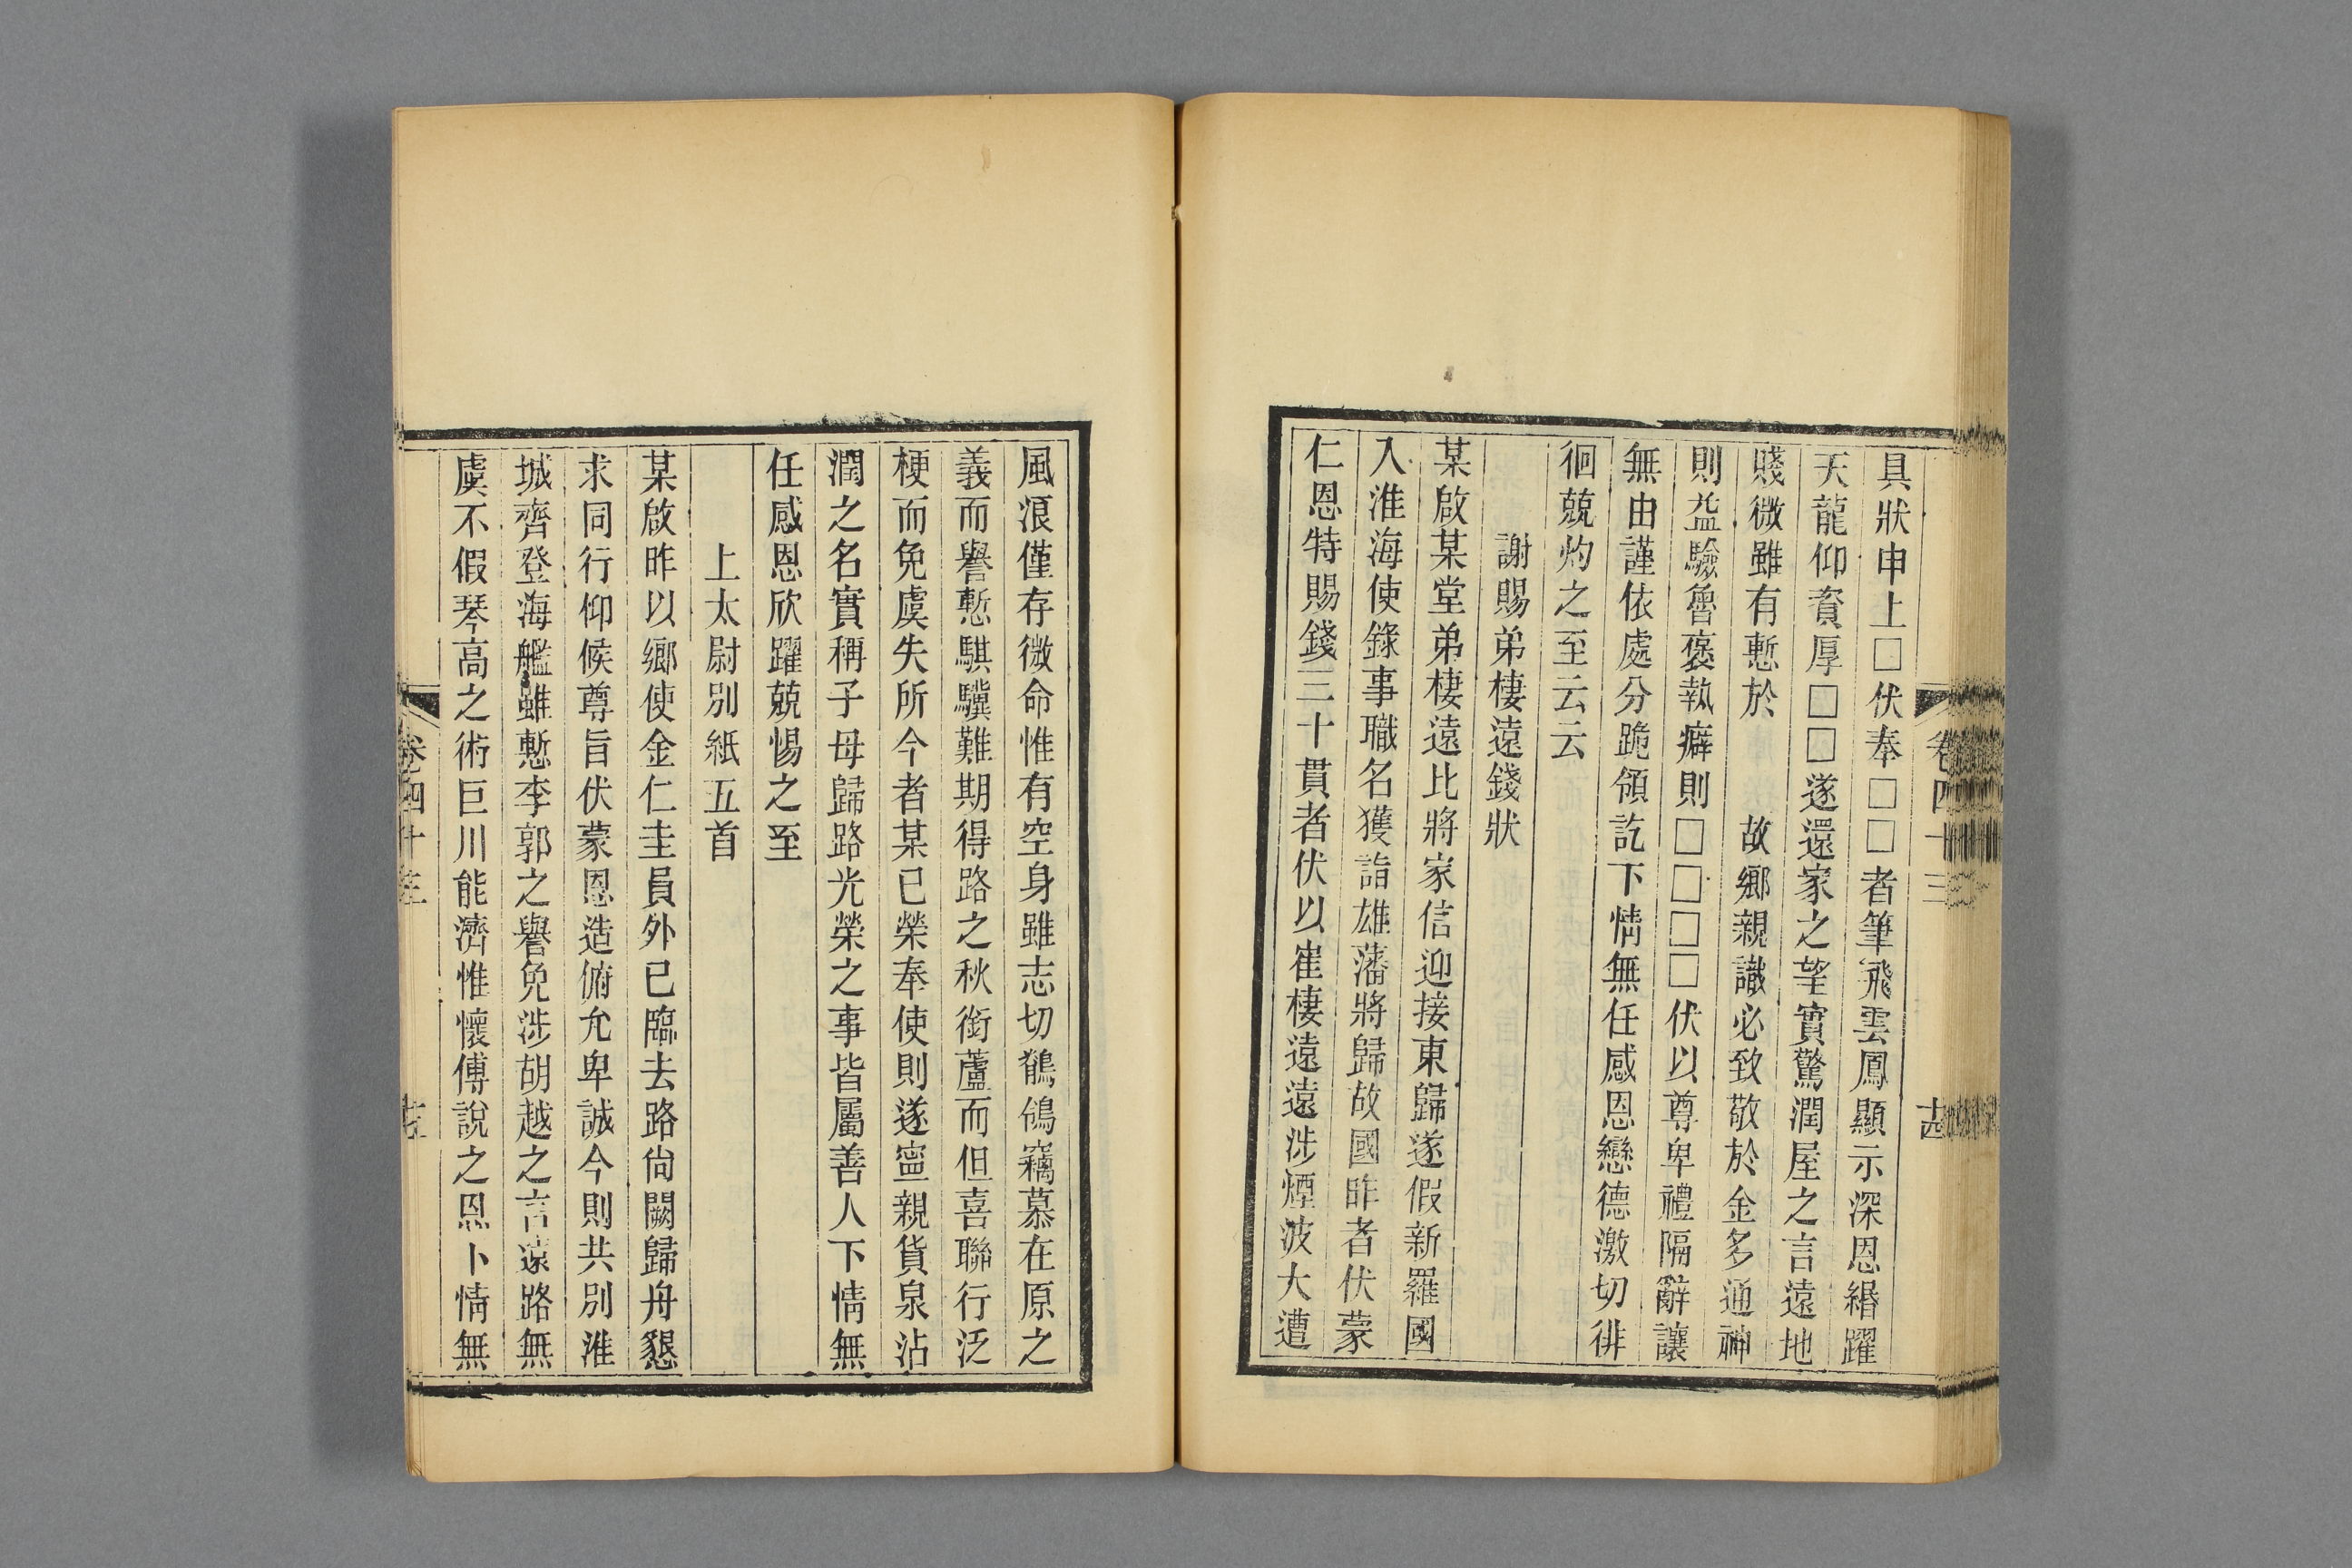 卷四十三
十四
具狀申上□伏奉□□者筆飛雲鳳顯示深恩緡躍
天龍仰賚厚□□遂還家之望實驚潤屋之言遠地
賤微雖有慙於 故鄉親識必致敬於金多通神
則益驗魯褒執癖則□□□□伏以尊卑禮隔辭讓
無由謹依處分跪領訖下情無任感恩戀德激切徘
徊兢灼之至云云
謝賜弟棲遠錢狀
某啟某堂弟棲遠比將家信迎接東歸遂假新羅國
入淮海使錄事職名獲詣雄藩將歸故國昨者伏蒙
仁恩特賜錢三十貫者伏以崔棲遠遠涉煙波大遭
風浪僅存微命惟有空身雖志切鶺鴒竊慕在原之
義而譽慙騏驥難期得路之秋銜蘆而但喜聯行泛
梗而免虞失所今者某已榮奉使則遂寧親貨泉沾
潤之名實稱子母歸路光榮之事皆屬善人下情無
任感恩欣躍兢惕之至
上太尉別紙五首
某啟昨以鄉使金仁圭員外已臨去路尙闕歸舟懇
求同行仰候尊旨伏蒙恩造俯允卑誠今則共別淮
城齊登海艦雖慙李郭之譽免涉胡越之言遠路無
虞不假琴高之術巨川能濟惟懷傅說之恩卜情無
卷四十三